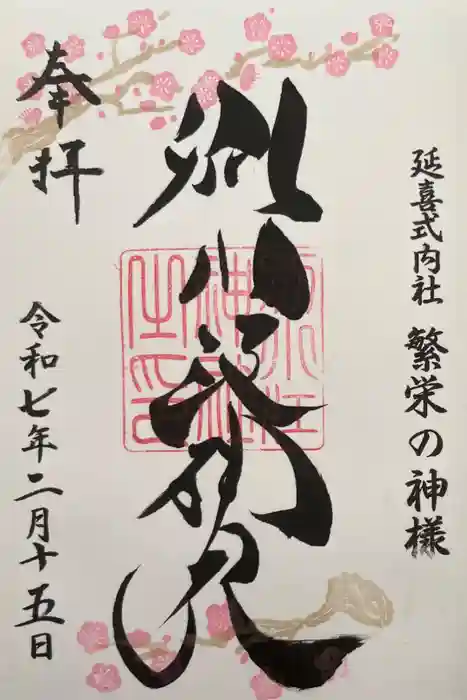 延喜式内社 繁栄の神様
別小江神社
神社
之印
奉拝
令和七年二月十五日